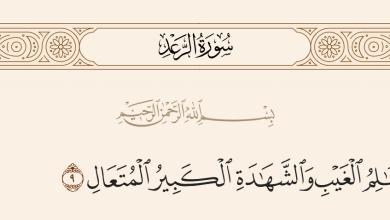 سُورَةُ الرَّعْدِ
بِسْمِ اللَّهِ الرَّحْمَٰنِ الرَّحِيمِ
الْغَيْبِ وَالشَّهَادَةِ الْكَبِيرُ الْمُتَعَالِ ٩